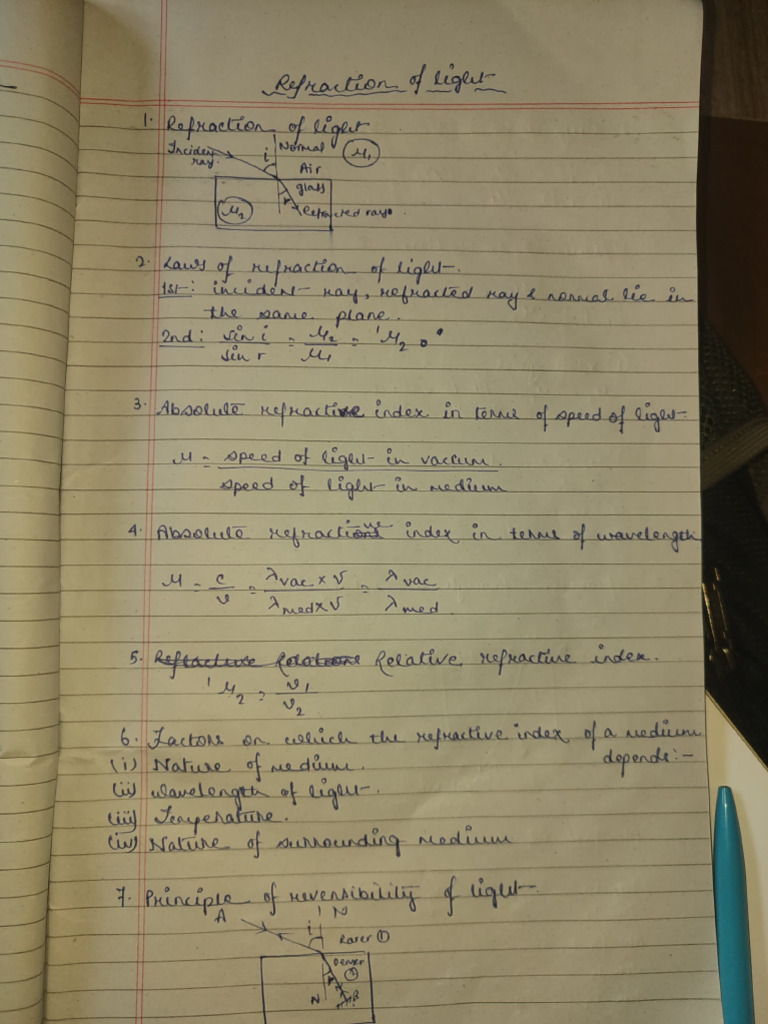 Refraction of light
1. Refraction of light
Incident ray
i
Normal
Air
μ₁
glass
r
Refracted ray
μ₂
2. Laws of refraction of light.
1st: incident ray, refracted ray & normal lie in
the same plane.
2nd: sin i / sin r = μ₂ / μ₁ = ¹μ₂
3. Absolute refractive index in terms of speed of light
μ = speed of light in vaccum
speed of light in medium
4. Absolute refractive index in terms of wavelength
μ = c / v = λvac × ν / λmed × ν = λvac / λmed.
5. Relative refractive index.
¹μ₂ = v₁ / v₂
6. Factors on which the refractive index of a medium
depends:-
(i) Nature of medium.
(ii) wavelength of light.
(iii) Temperature.
(iv) Nature of surrounding medium
7. Principle of reversibility of light
A
N
i
Rarer ①
Denser
②
r
N
B